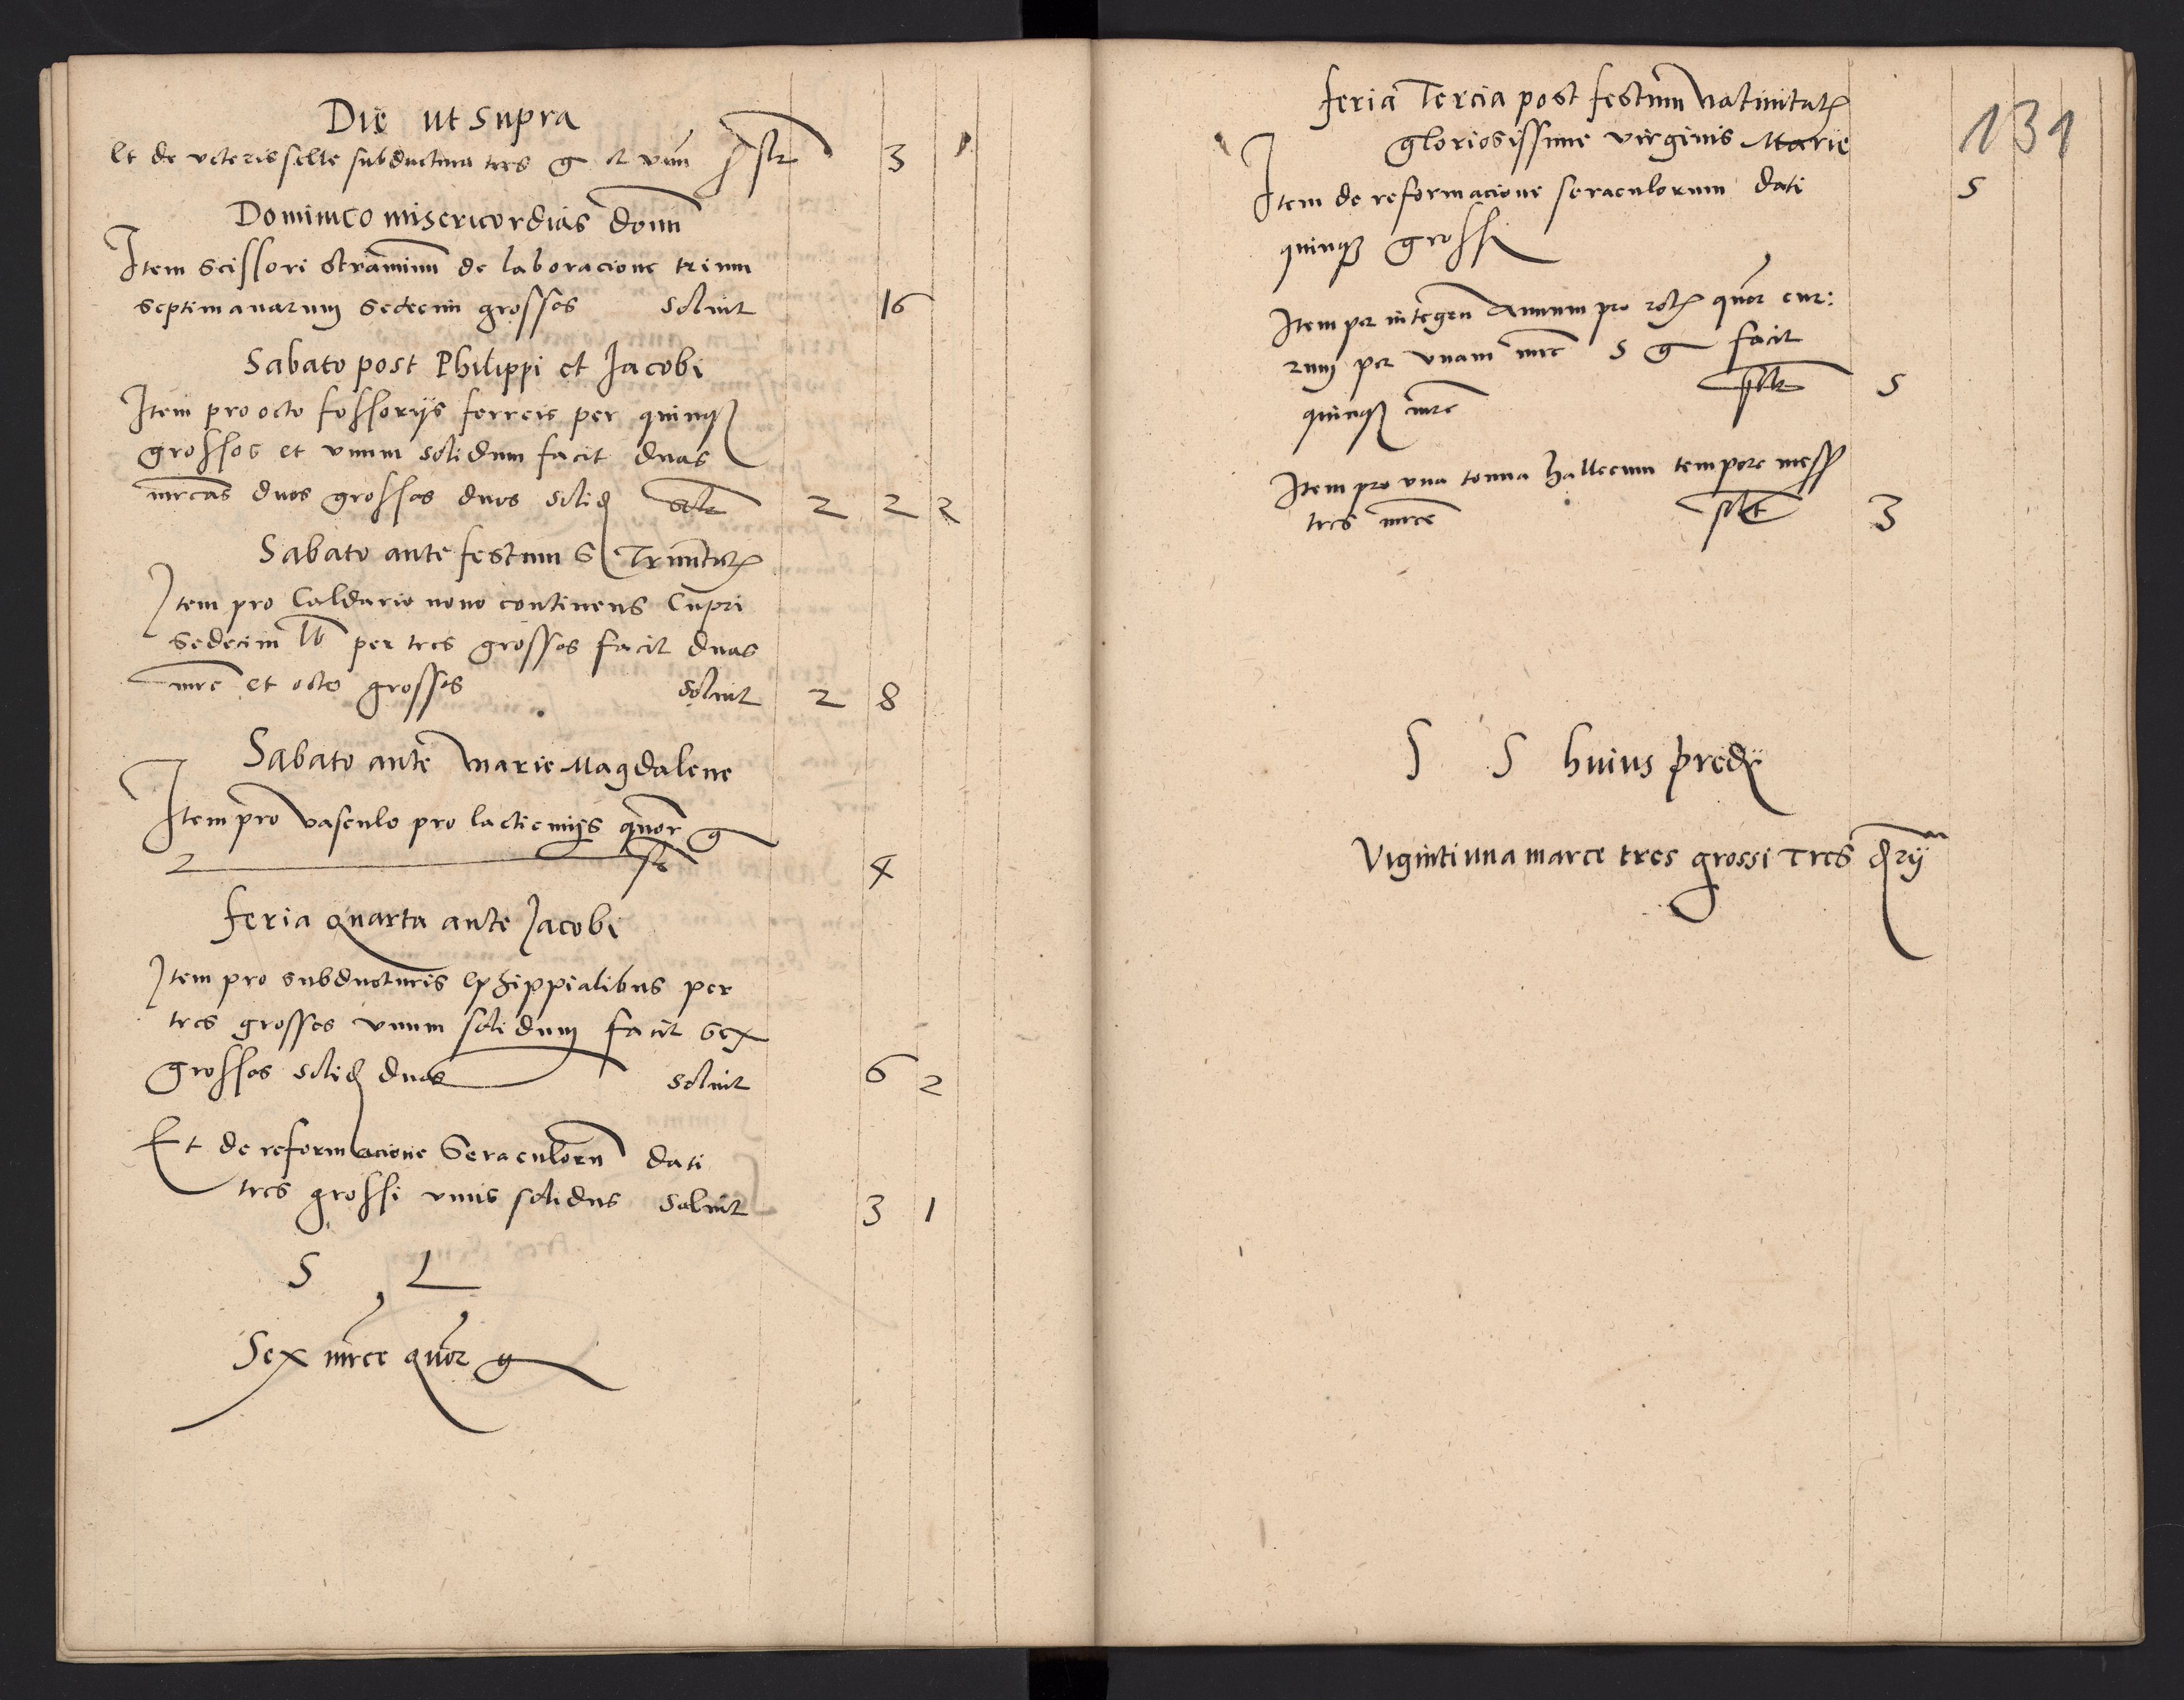 Die ut supra
Et de veteris selle subductura tres g et unũ s solt 3 1
Dominico misericordias domĩ
Item scissori straminum de laboracione trium
septimanarum sedecim grossos soluit 16
Sabato post Philippi et Jacobi
Item pro octo fossorijs ferreis per quinqȝ
grossos et vnum solidum facit duas
mrcas duos grossos duos solid solt 2 2 2
Sabato ante festum S Trinitatꝭ
Item pro Caldario nouo continens Cupri
sedecim lb per tres grossos facit duas
mrc et octo grossos soluit 2 8
Sabato ante marie Magdalene
Item pro vasculo pro lacticinijs quor g
st 4
feria quarta ante Jacobi
Item pro subducturis ephippialibus per
tres grossos vnum solidum facit sex
grossos solid duos soluit 6 2
Et de reformacione Seraculorũ dati
tres grossi vnus solidus soluit 3 1
S L
Sex mrce quor g
131
feria Tercia post festum natiuitatꝭ
gloriosissime virginis Marie
Item de reformacione seraculorum dati 5
quinqȝ grossi
Item per integrũ Annum pro rotꝭ quor cur:
rum per vnam mrc 5 g facit
quinqȝ mrc solt 5
Item pro vna tonna hallecum tempore mess
tres mrce solt 3
S S huius predij
Viginti una marce tres grossi Tres